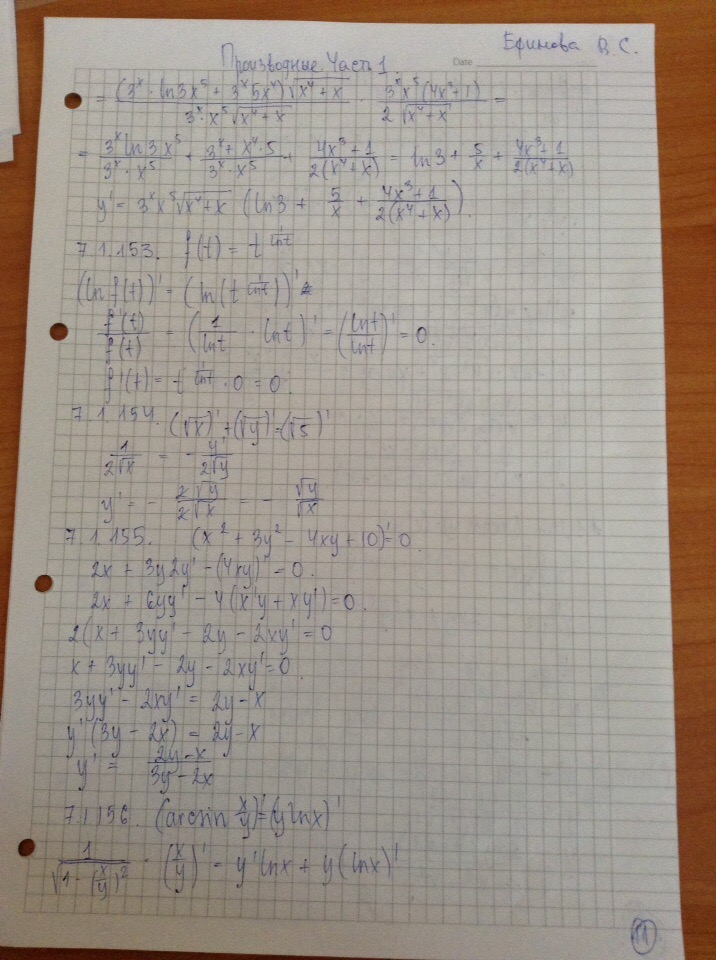 Ефимова В. С.
Производные. Часть 1.
Date
= (3^x · ln3x^5 + 3^x 5x^4)√(x^4+x) / (3^x · x^5 √(x^4+x)) · 3^x x^5 (4x^3+1) / (2√(x^4+x)) =
= 3^x ln3 x^5 / (3^x · x^5) + 3^x + x^4 · 5 / (3^x · x^5) + (4x^3+1) / (2(x^4+x)) = ln3 + 5/x + (4x^3+1) / (2(x^4+x))
y' = 3^x x^5 √(x^4+x) (ln3 + 5/x + (4x^3+1) / (2(x^4+x))).
7.1.153. f(t) = t^(1/lnt)
(ln f(t))' = (ln(t^(1/lnt)))'
f'(t)/f(t) = (1/lnt · lnt)' = (lnt/lnt)' = 0.
f'(t) = t^(1/lnt) · 0 = 0.
7.1.154. (√x)' + (√y)' = (√5)'
1/(2√x) = - y'/(2√y)
y' = - 2√y/(2√x) = - √y/√x
7.1.155. (x^2 + 3y^2 - 4xy + 10)' = 0.
2x + 3y2y' - (4xy)' = 0.
2x + 6yy' - 4(x'y + xy') = 0.
2(x + 3yy' - 2y - 2xy' = 0
x + 3yy' - 2y - 2xy' = 0.
3yy' - 2xy' = 2y - x
y'(3y - 2x) = 2y - x
y' = (2y - x)/(3y - 2x)
7.1.156. (arcsin x/y)' = (y lnx)'
1/√(1 - (x/y)^2) · (x/y)' = y' lnx + y (lnx)'
11